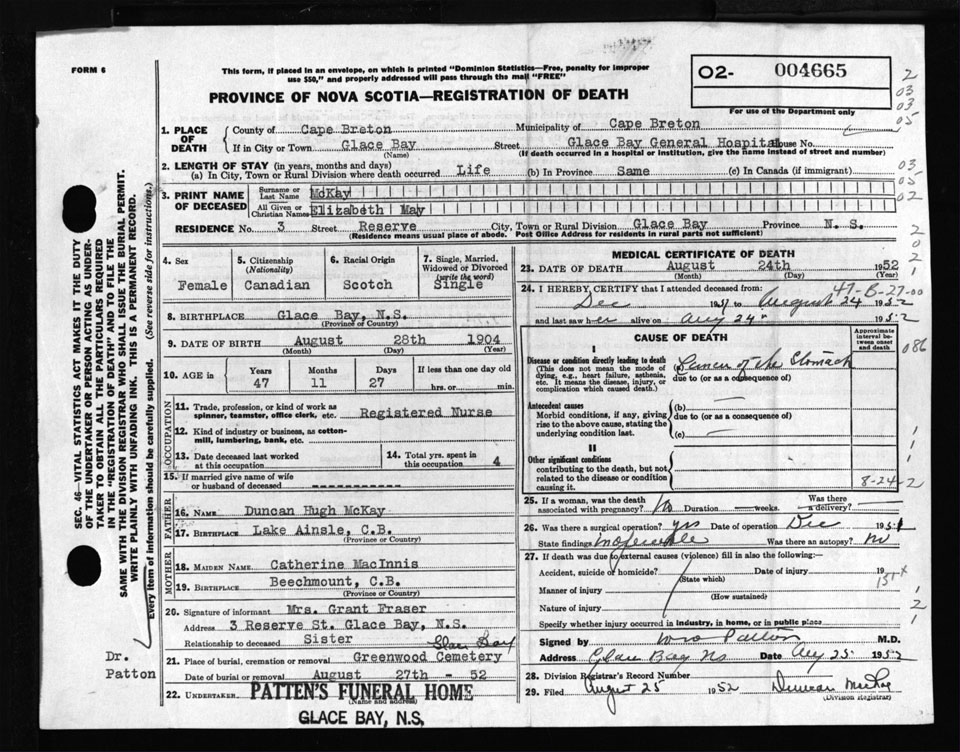 FORM 6
This form, if placed in an envelope, on which is printed "Dominion Statistics—Free, penalty for improper
use $50," and properly addressed will pass through the mail "FREE"
PROVINCE OF NOVA SCOTIA—REGISTRATION OF DEATH
02- 004665
For use of the Department only
2
03
03
05
1. PLACE OF DEATH
County of Cape Breton Municipality of Cape Breton
If in City or Town Glace Bay Street Glace Bay General Hospital House No.
(Name) (If death occurred in a hospital or institution, give the name instead of street and number)
2. LENGTH OF STAY (in years, months and days)
(a) In City, Town or Rural Division where death occurred Life (b) In Province Same (c) In Canada (if immigrant)
03
05
02
3. PRINT NAME OF DECEASED
Surname or Last Name McKay
All Given or Christian Names Elizabeth May
RESIDENCE No. 3 Street Reserve City, Town or Rural Division Glace Bay Province N. S.
(Residence means usual place of abode. Post Office Address for residents in rural parts not sufficient)
4. Sex
Female
5. Citizenship
(Nationality)
Canadian
6. Racial Origin
Scotch
7. Single, Married,
Widowed or Divorced
(write the word)
Single
8. BIRTHPLACE Glace Bay, N.S.
(Province or Country)
9. DATE OF BIRTH August 28th 1904
(Month) (Day) (Year)
10. AGE in Years Months Days If less than one day old
47 11 27 hrs. or min.
OCCUPATION
11. Trade, profession, or kind of work as
spinner, teamster, office clerk, etc. Registered Nurse
12. Kind of industry or business, as cotton-
mill, lumbering, bank, etc.
13. Date deceased last worked
at this occupation
14. Total yrs. spent in
this occupation 4
15. If married give name of wife
or husband of deceased
FATHER
16. NAME Duncan Hugh McKay
17. BIRTHPLACE Lake Ainsle, C.B.
(Province or Country)
MOTHER
18. MAIDEN NAME Catherine MacInnis
19. BIRTHPLACE Beechmount, C.B.
(Province or Country)
20. Signature of informant Mrs. Grant Fraser
Address 3 Reserve St. Glace Bay, N.S.
Relationship to deceased Sister
Glace Bay
21. Place of burial, cremation or removal Greenwood Cemetery
Date of burial or removal August 27th - 52
22. UNDERTAKER PATTEN'S FUNERAL HOME
(Name and address)
GLACE BAY, N.S.
MEDICAL CERTIFICATE OF DEATH
23. DATE OF DEATH August 24th 1952
(Month) (Day) (Year)
24. I HEREBY CERTIFY that I attended deceased from: 47-B-27-00
Dec 1951 to August 24 1952
and last saw her alive on Aug 24" 1952
CAUSE OF DEATH
Approximate interval between onset and death
086
I
Disease or condition directly leading to death
(This does not mean the mode of
dying, e.g., heart failure, asthenia,
etc. It means the disease, injury, or
complication which caused death.)
of the Stomach
due to (or as a consequence of)
Antecedent causes
Morbid conditions, if any, giving
rise to the above cause, stating the
underlying condition last.
(b)
due to (or as a consequence of)
(c)
II
Other significant conditions
contributing to the death, but not
related to the disease or condition
causing it.
8-24-2
25. If a woman, was the death
associated with pregnancy? No Duration weeks. Was there a delivery?
26. Was there a surgical operation? yes Date of operation Dec 1951
State findings inoperable Was there an autopsy? No
27. If death was due to external causes (violence) fill in also the following:—
Accident, suicide or homicide? Date of injury 19
(State which)
151x
Manner of injury
(How sustained)
Nature of injury
Specify whether injury occurred in industry, in home, or in public place
Signed by Patton M.D.
Address Glace Bay NS Date Aug 25 1952
28. Division Registrar's Record Number
29. Filed August 25 1952 Duncan
(Division Registrar)
SEC. 46—VITAL STATISTICS ACT MAKES IT THE DUTY
OF THE UNDERTAKER OR PERSON ACTING AS UNDER-
TAKER TO OBTAIN ALL THE PARTICULARS REQUIRED
IN THE "REGISTRATION OF DEATH" AND TO FILE THE
SAME WITH THE DIVISION REGISTRAR WHO SHALL ISSUE THE BURIAL PERMIT.
WRITE PLAINLY WITH UNFADING INK. THIS IS A PERMANENT RECORD.
Every item of information should be carefully supplied. (See reverse side for instructions.)
Dr.
Patton